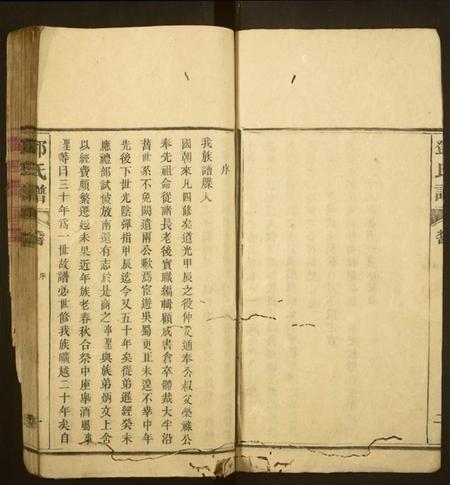 序
我族譜牒入
國朝來凡四修矣道光甲辰之役仲父通奉公叔父榮祿公
奉先祖命從諸長老後實職編輯顧成書倉卒體裁大半沿
舊世系不免闕遺兩公歉焉宦遊吳蜀更正未遑不幸中年
先後下世光陰彈指甲辰迄今又五十年矣從弟選經癸未
應禮部試被放南還有志於是商之與族弟炳文上舍
以經費頗繁遷延未果近年族老春秋合祭中座舉酒屬
等曰三十年為一世故譜必世修我族曠越二十年矣自
鄧氏譜
序
一
二